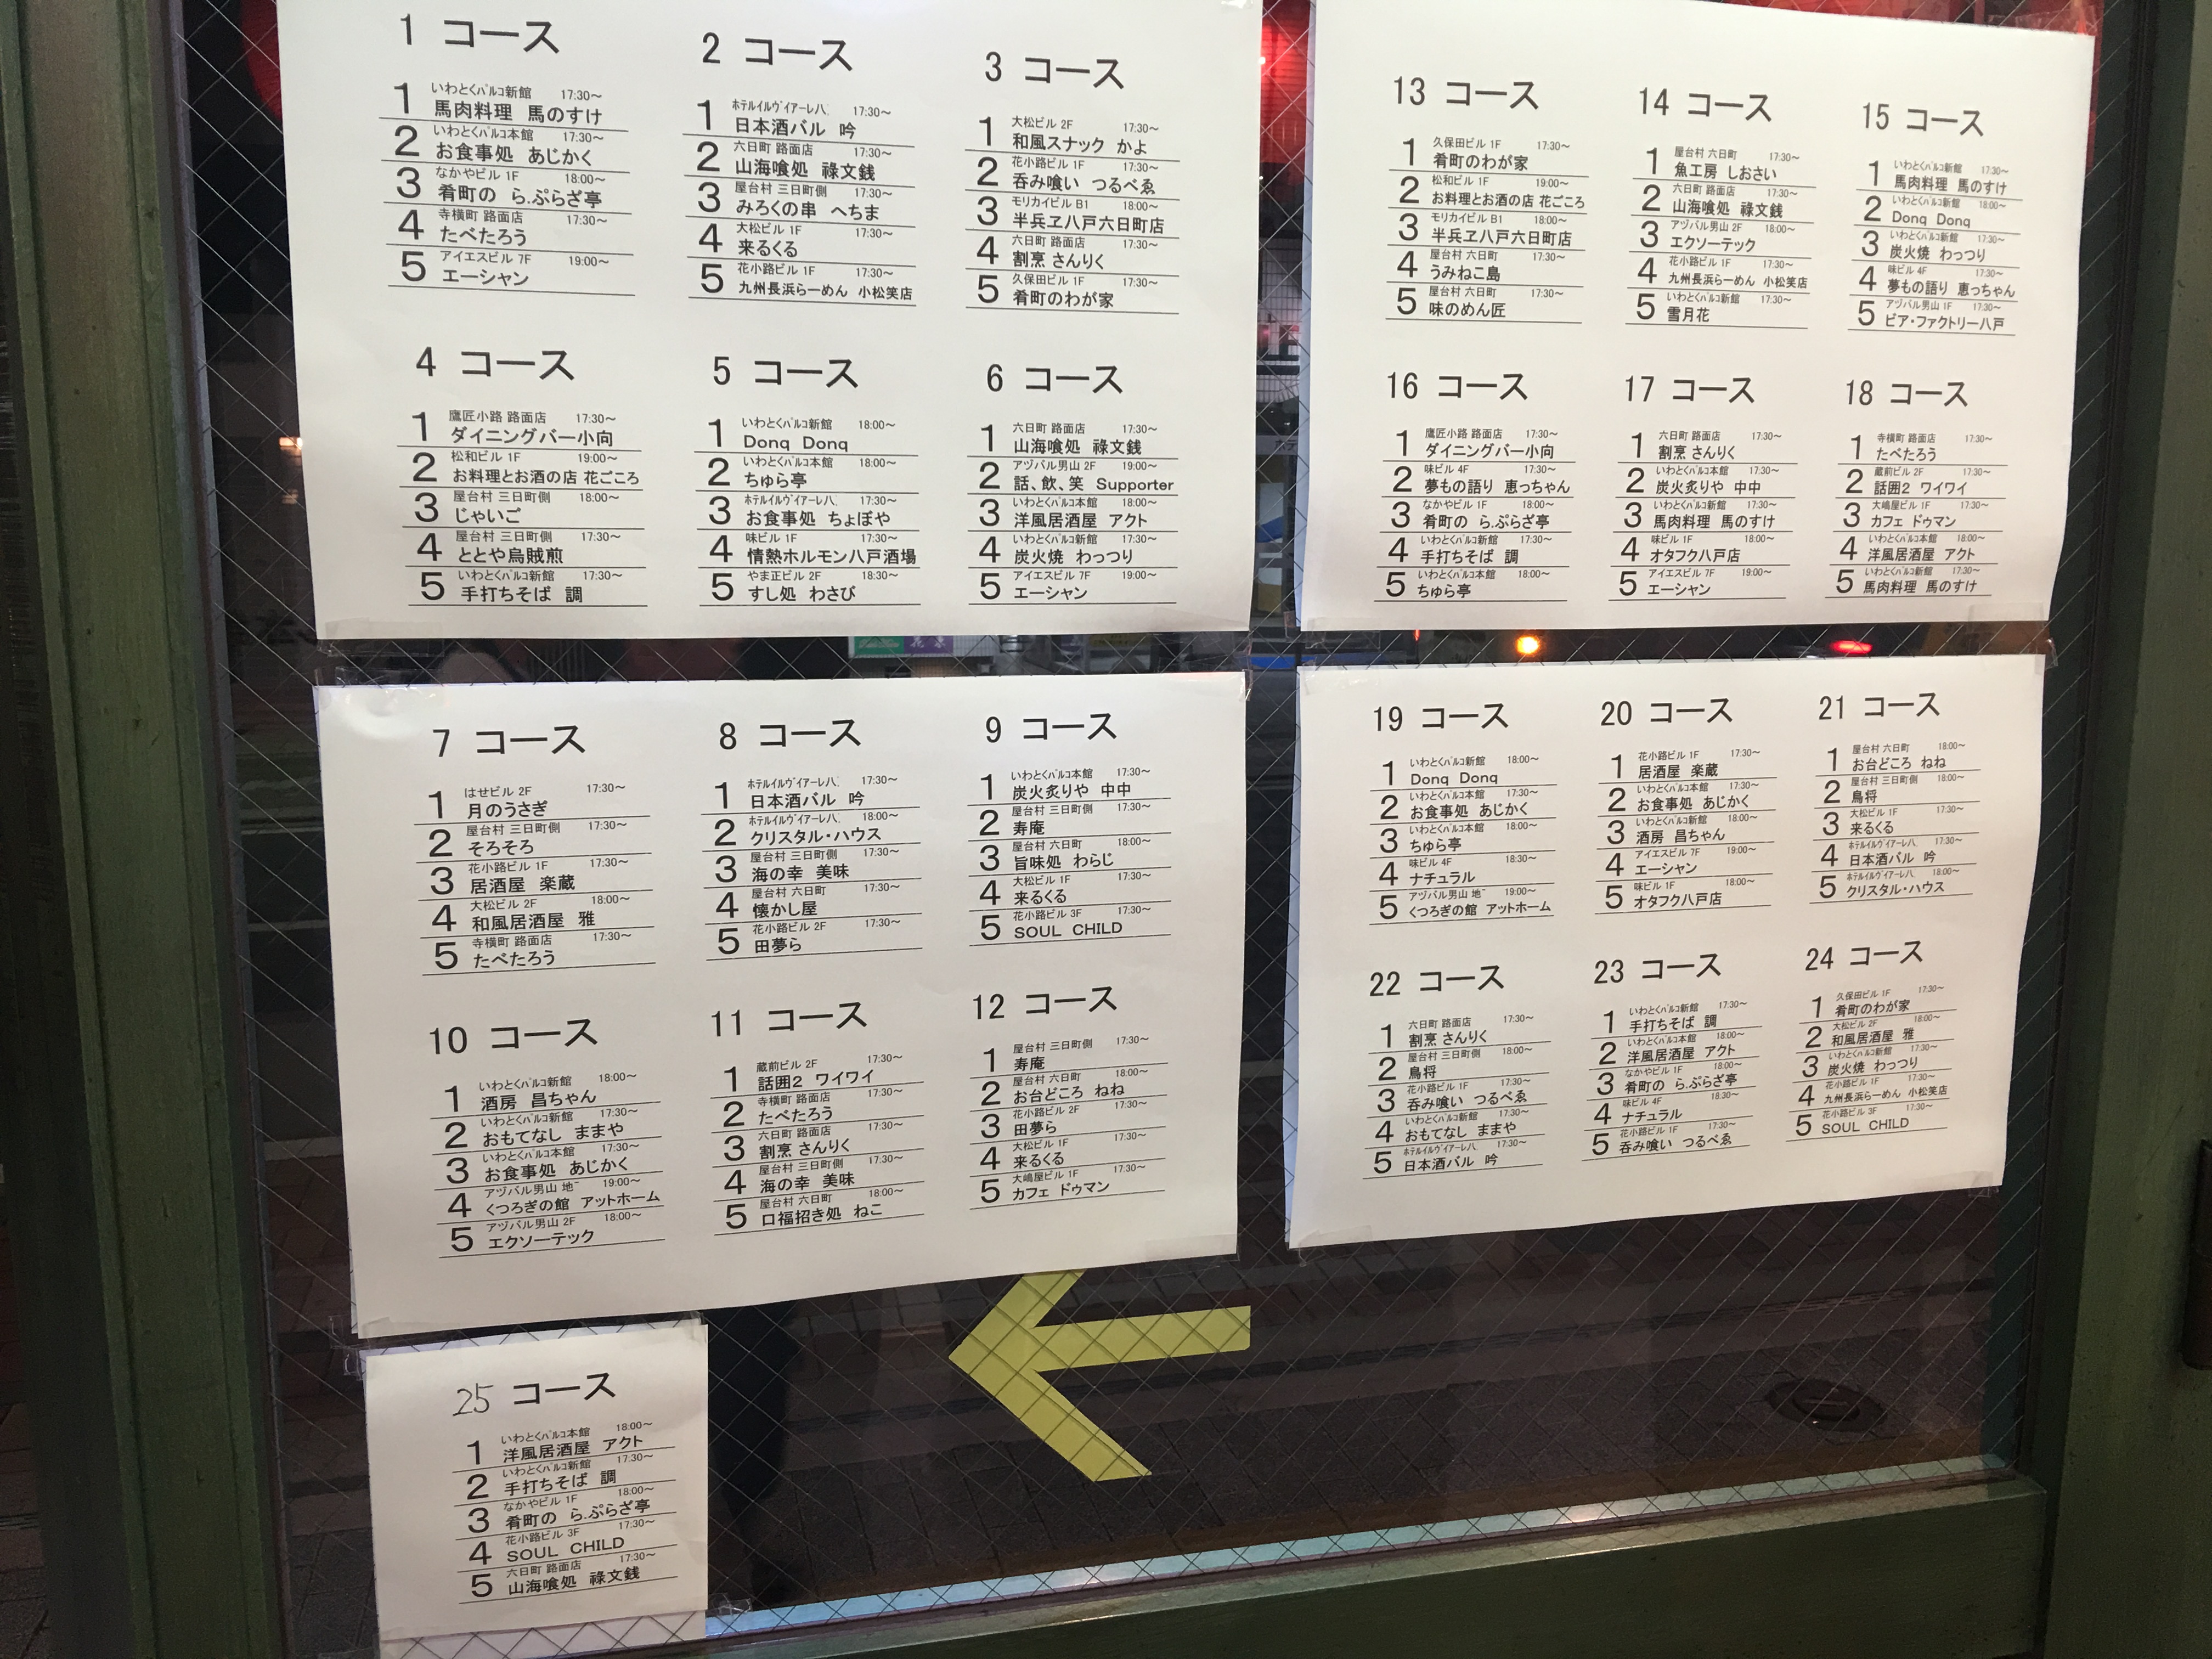 1 コース
1 いわとくパルコ新館 17:30～
馬肉料理 馬のすけ
2 いわとくパルコ本館 17:30～
お食事処 あじかく
3 なかやビル 1F 18:00～
肴町の ら.ぷらざ亭
4 寺横町 路面店 17:30～
たべたろう
5 アイエスビル 7F 19:00～
エーシャン
2 コース
1 ホテルイルヴィアーレ八. 17:30～
日本酒バル 吟
2 六日町 路面店 17:30～
山海喰処 祿文銭
3 屋台村 三日町側 17:30～
みろくの串 へちま
4 大松ビル 1F 17:30～
来るくる
5 花小路ビル 1F 17:30～
九州長浜らーめん 小松笑店
3 コース
1 大松ビル 2F 17:30～
和風スナック かよ
2 花小路ビル 1F 17:30～
呑み喰い つるべゑ
3 モリカイビル B1 18:00～
半兵ヱ八戸六日町店
4 六日町 路面店 17:30～
割烹 さんりく
5 久保田ビル 1F 17:30～
肴町のわが家
4 コース
1 鷹匠小路 路面店 17:30～
ダイニングバー小向
2 松和ビル 1F 19:00～
お料理とお酒の店 花ごころ
3 屋台村 三日町側 18:00～
じゃいご
4 屋台村 三日町側 17:30～
ととや烏賊煎
5 いわとくパルコ新館 17:30～
手打ちそば 調
5 コース
1 いわとくパルコ新館 18:00～
Donq Donq
2 いわとくパルコ本館 18:00～
ちゅら亭
3 ホテルイルヴィアーレ八. 17:30～
お食事処 ちょぼや
4 味ビル 1F 17:30～
情熱ホルモン八戸酒場
5 やま正ビル 2F 18:30～
すし処 わさび
6 コース
1 六日町 路面店 17:30～
山海喰処 祿文銭
2 アヅバル男山 2F 19:00～
話、飲、笑 Supporter
3 いわとくパルコ本館 18:00～
洋風居酒屋 アクト
4 いわとくパルコ新館 17:30～
炭火焼 わっつり
5 アイエスビル 7F 19:00～
エーシャン
13 コース
1 久保田ビル 1F 17:30～
肴町のわが家
2 松和ビル 1F 19:00～
お料理とお酒の店 花ごころ
3 モリカイビル B1 18:00～
半兵ヱ八戸六日町店
4 屋台村 六日町 17:30～
うみねこ島
5 屋台村 六日町 17:30～
味のめん匠
14 コース
1 屋台村 六日町 17:30～
魚工房 しおさい
2 六日町 路面店 17:30～
山海喰処 祿文銭
3 アヅバル男山 2F 18:00～
エクソーテック
4 花小路ビル 1F 17:30～
九州長浜らーめん 小松笑店
5 いわとくパルコ新館 17:30～
雪月花
15 コース
1 いわとくパルコ新館 17:30～
馬肉料理 馬のすけ
2 いわとくパルコ新館 18:00～
Donq Donq
3 いわとくパルコ新館 17:30～
炭火焼 わっつり
4 味ビル 4F 17:30～
夢もの語り 恵っちゃん
5 アヅバル男山 1F 17:30～
ビア・ファクトリー八戸
16 コース
1 鷹匠小路 路面店 17:30～
ダイニングバー小向
2 味ビル 4F 17:30～
夢もの語り 恵っちゃん
3 なかやビル 1F 18:00～
肴町の ら.ぷらざ亭
4 いわとくパルコ新館 17:30～
手打ちそば 調
5 いわとくパルコ本館 18:00～
ちゅら亭
17 コース
1 六日町 路面店 17:30～
割烹 さんりく
2 いわとくパルコ本館 17:30～
炭火炙りや 中中
3 いわとくパルコ新館 17:30～
馬肉料理 馬のすけ
4 味ビル 1F 18:00～
オタフク八戸店
5 アイエスビル 7F 19:00～
エーシャン
18 コース
1 寺横町 路面店 17:30～
たべたろう
2 蔵前ビル 2F 17:30～
話囲2 ワイワイ
3 大嶋屋ビル 1F 17:30～
カフェ ドゥマン
4 いわとくパルコ本館 18:00～
洋風居酒屋 アクト
5 いわとくパルコ新館 17:30～
馬肉料理 馬のすけ
7 コース
1 はせビル 2F 17:30～
月のうさぎ
2 屋台村 三日町側 17:30～
そろそろ
3 花小路ビル 1F 17:30～
居酒屋 楽蔵
4 大松ビル 2F 18:00～
和風居酒屋 雅
5 寺横町 路面店 17:30～
たべたろう
8 コース
1 ホテルイルヴィアーレ八. 17:30～
日本酒バル 吟
2 ホテルイルヴィアーレ八. 18:00～
クリスタル・ハウス
3 屋台村 三日町側 17:30～
海の幸 美味
4 屋台村 六日町 17:30～
懐かし屋
5 花小路ビル 2F 17:30～
田夢ら
9 コース
1 いわとくパルコ本館 17:30～
炭火炙りや 中中
2 屋台村 三日町側 17:30～
寿庵
3 屋台村 六日町 18:00～
旨味処 わらじ
4 大松ビル 1F 17:30～
来るくる
5 花小路ビル 3F 17:30～
SOUL CHILD
10 コース
1 いわとくパルコ新館 18:00～
酒房 昌ちゃん
2 いわとくパルコ新館 17:30～
おもてなし ままや
3 いわとくパルコ本館 17:30～
お食事処 あじかく
4 アヅバル男山 地~ 19:00～
くつろぎの館 アットホーム
5 アヅバル男山 2F 18:00～
エクソーテック
11 コース
1 蔵前ビル 2F 17:30～
話囲2 ワイワイ
2 寺横町 路面店 17:30～
たべたろう
3 六日町 路面店 17:30～
割烹 さんりく
4 屋台村 三日町側 17:30～
海の幸 美味
5 屋台村 六日町 18:00～
口福招き処 ねこ
12 コース
1 屋台村 三日町側 17:30～
寿庵
2 屋台村 六日町 18:00～
お台どころ ねね
3 花小路ビル 2F 17:30～
田夢ら
4 大松ビル 1F 17:30～
来るくる
5 大嶋屋ビル 1F 17:30～
カフェ ドゥマン
19 コース
1 いわとくパルコ新館 18:00～
Donq Donq
2 いわとくパルコ本館 17:30～
お食事処 あじかく
3 いわとくパルコ本館 18:00～
ちゅら亭
4 味ビル 4F 18:30～
ナチュラル
5 アヅバル男山 地~ 19:00～
くつろぎの館 アットホーム
20 コース
1 花小路ビル 1F 17:30～
居酒屋 楽蔵
2 いわとくパルコ本館 17:30～
お食事処 あじかく
3 いわとくパルコ新館 18:00～
酒房 昌ちゃん
4 アイエスビル 7F 19:00～
エーシャン
5 味ビル 1F 18:00～
オタフク八戸店
21 コース
1 屋台村 六日町 18:00～
お台どころ ねね
2 屋台村 三日町側 18:00～
鳥将
3 大松ビル 1F 17:30～
来るくる
4 ホテルイルヴィアーレ八. 17:30～
日本酒バル 吟
5 ホテルイルヴィアーレ八. 18:00～
クリスタル・ハウス
22 コース
1 六日町 路面店 17:30～
割烹 さんりく
2 屋台村 三日町側 18:00～
鳥将
3 花小路ビル 1F 17:30～
呑み喰い つるべゑ
4 いわとくパルコ新館 17:30～
おもてなし ままや
5 ホテルイルヴィアーレ八. 17:30～
日本酒バル 吟
23 コース
1 いわとくパルコ新館 17:30～
手打ちそば 調
2 いわとくパルコ本館 18:00～
洋風居酒屋 アクト
3 なかやビル 1F 18:00～
肴町の ら.ぷらざ亭
4 味ビル 4F 18:30～
ナチュラル
5 花小路ビル 1F 17:30～
呑み喰い つるべゑ
24 コース
1 久保田ビル 1F 17:30～
肴町のわが家
2 大松ビル 2F 18:00～
和風居酒屋 雅
3 いわとくパルコ新館 17:30～
炭火焼 わっつり
4 花小路ビル 1F 17:30～
九州長浜らーめん 小松笑店
5 花小路ビル 3F 17:30～
SOUL CHILD
25 コース
1 いわとくパルコ本館 18:00～
洋風居酒屋 アクト
2 いわとくパルコ新館 17:30～
手打ちそば 調
3 なかやビル 1F 18:00～
肴町の ら.ぷらざ亭
4 花小路ビル 3F 17:30～
SOUL CHILD
5 六日町 路面店 17:30～
山海喰処 祿文銭